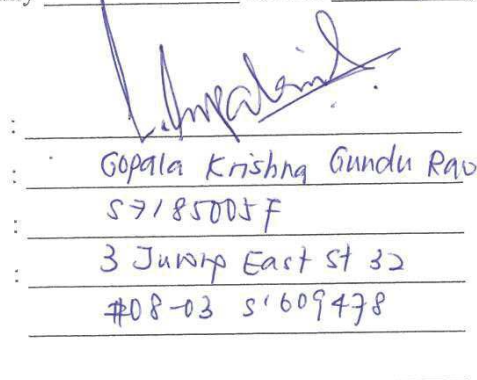 :
: Gopala Krishna Gundu Rao
: S7185005F
: 3 Jurong East St 32
#08-03 S'609478